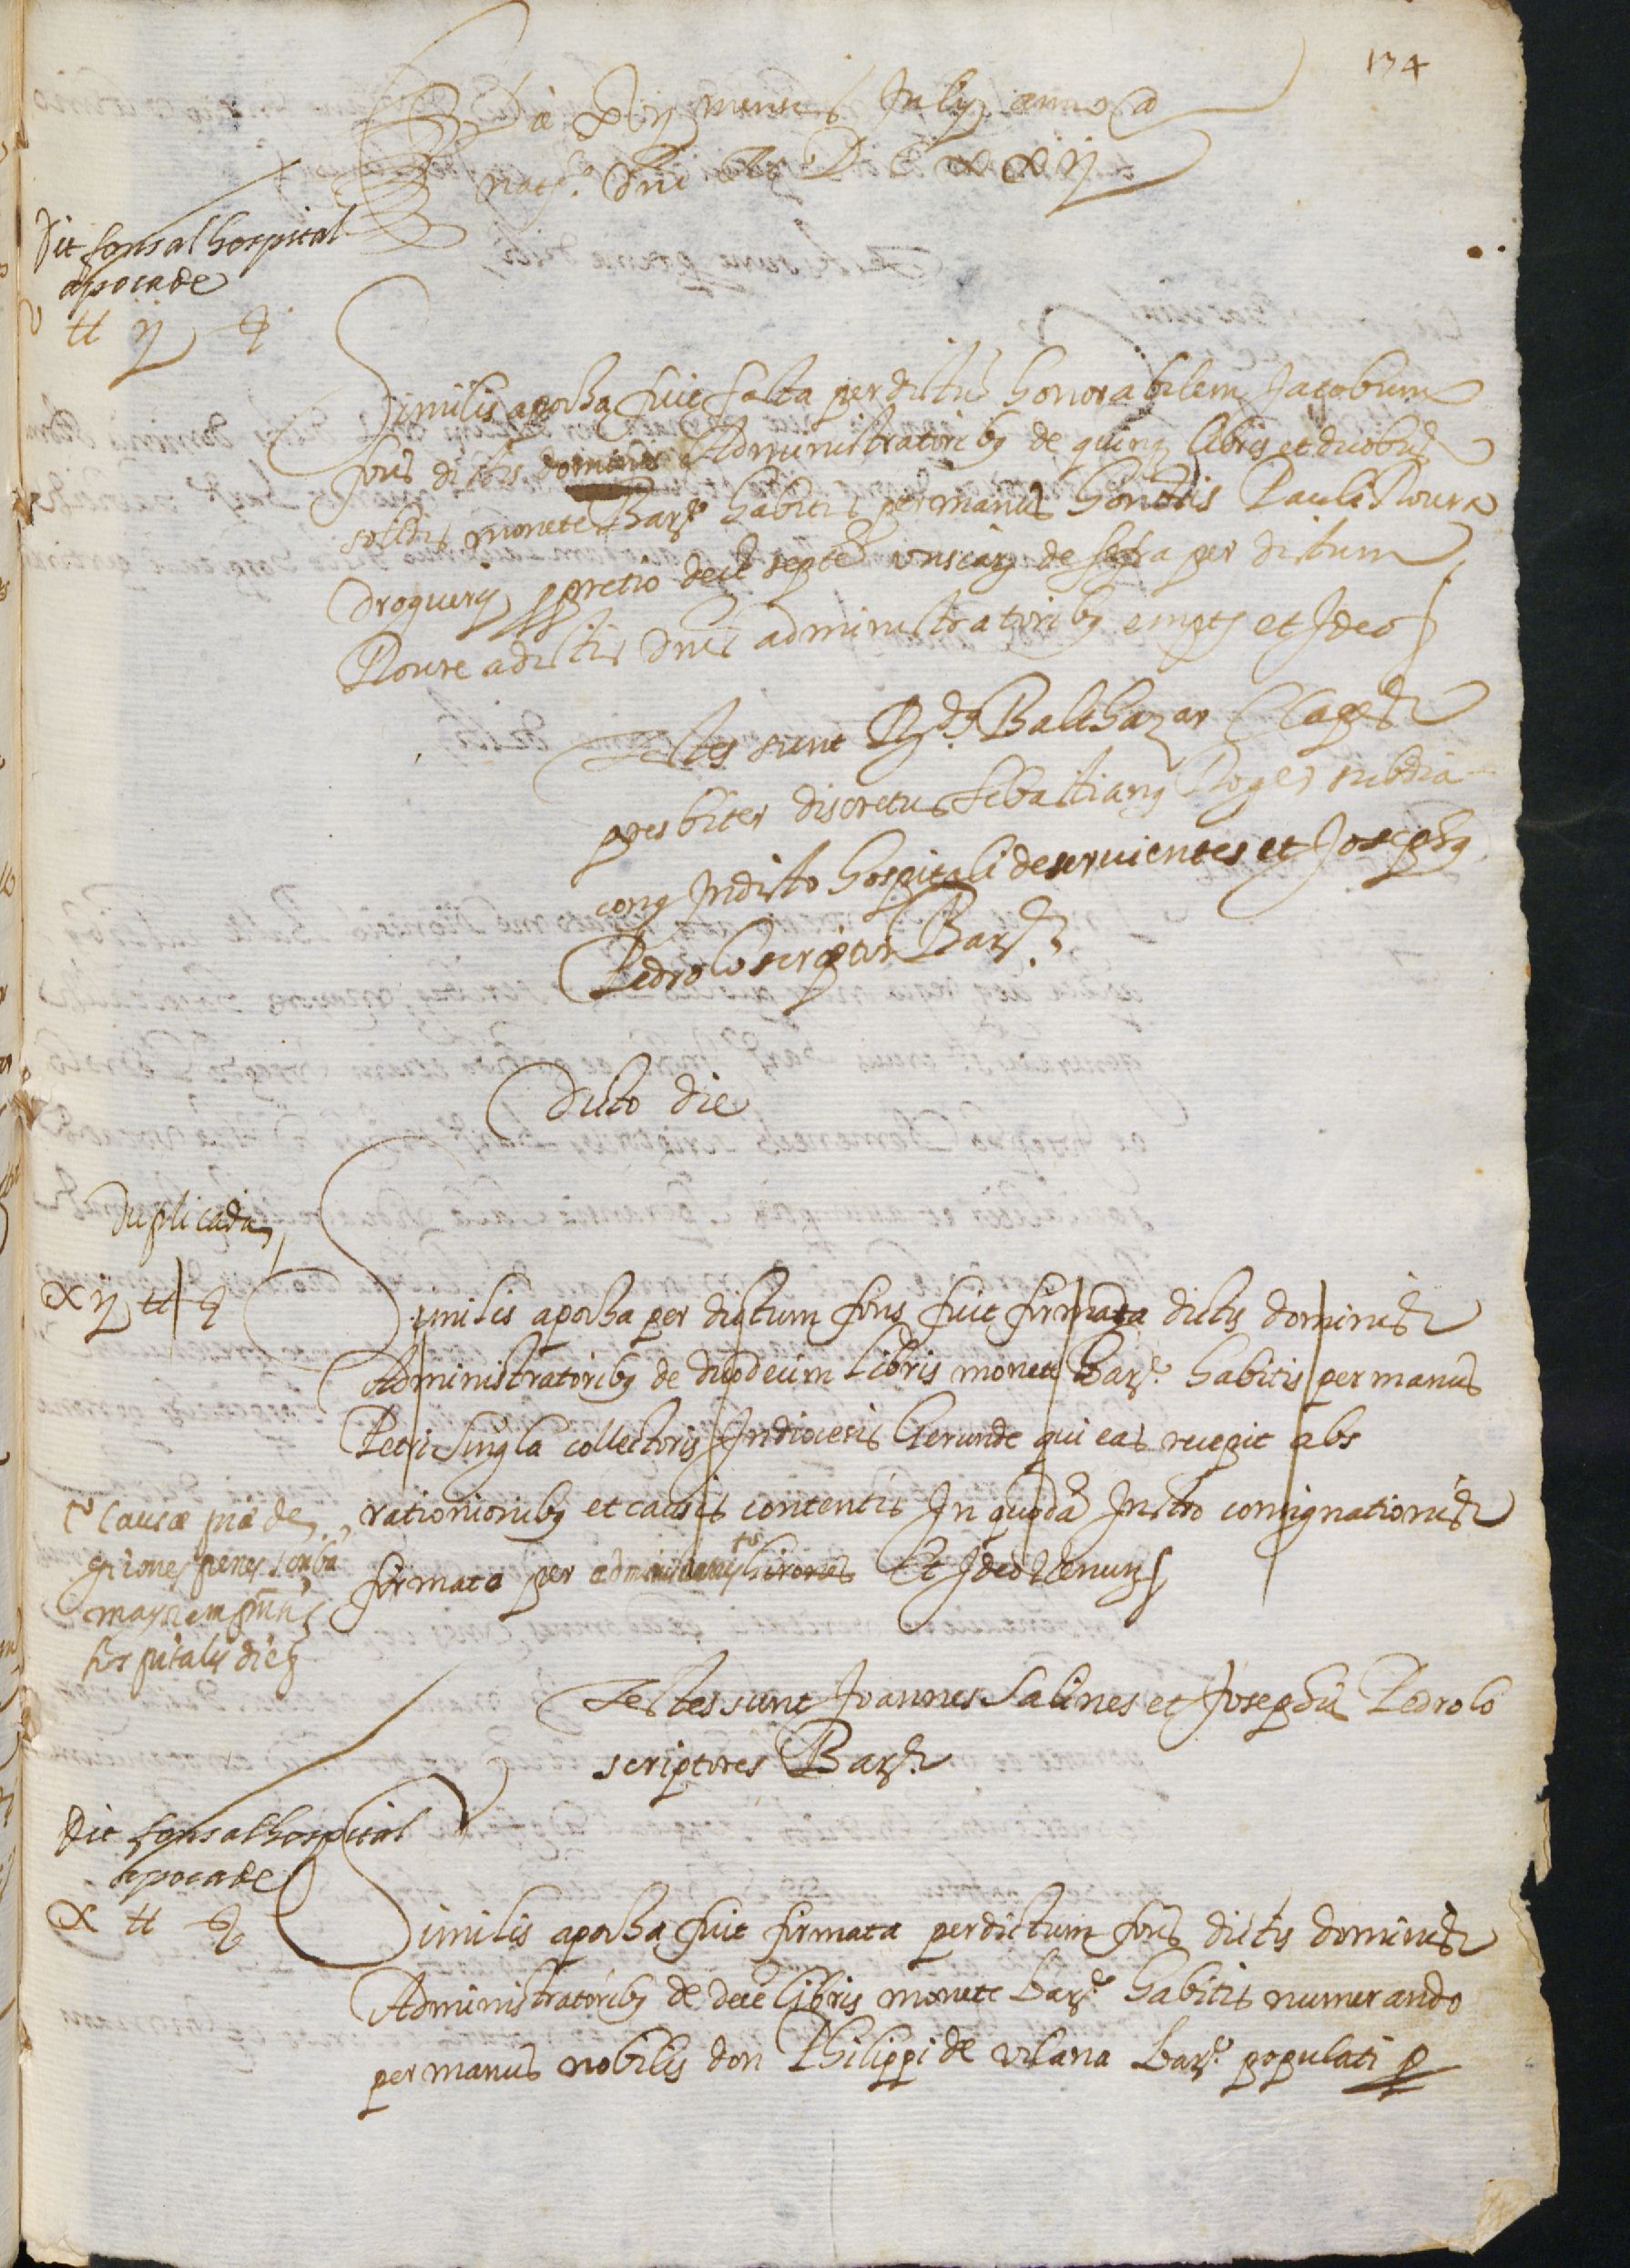 174
Die xij mensis Julij anno a
nat.e Dni M D C x x ij
Dit fons al hospital
apocade
v ℔ ij ß
Similis apocha fuit facta per dictū honorabilem Jacobum
fons dictis dominis Administratoribꝫ de quinqꝫ libris et duobus
solidis monete Barc.e habitis per manus honoris Pauli Roura
Droguerij pretio decē septē unsiarū de per dictum
Roure a dictis Dnis administratoribꝫ emptꝫ et Ideo
Testes sunt R.dꝰ Balthazar Clages
presbiter discretus Sebastianꝰ Roger subdia
conꝰ In dicto hospitali deseruientes et Josephꝰ
Pedrolo scriptor Barc.e
Dicto die
Duplicada
xij ℔ ß
Similis apocha per dictum fons fuit firmata dictis dominis
Administratoribꝫ de duodecim libris monete Barc.e habitis per manus
Petri Singla collectoris In diocesis Gerunde qui eas recepit abs
rationionibꝫ et causis contentis In quodā Instro consignationis
firmata per Et Ideo renunꝫ
causa pia de
penes scriba
hospitalis
Testes sunt Joannes Salines et Josephus Pedrolo
scriptores Barc.e
Dit fons al hospital
apocade
x ℔ ß
Similis apocha fuit firmata per dictum fons dictis dominis
Administratoribꝫ de decē libris monete Barc.e habitis numerando
per manus nobilis don Philippi de vilana Barc.e populati p